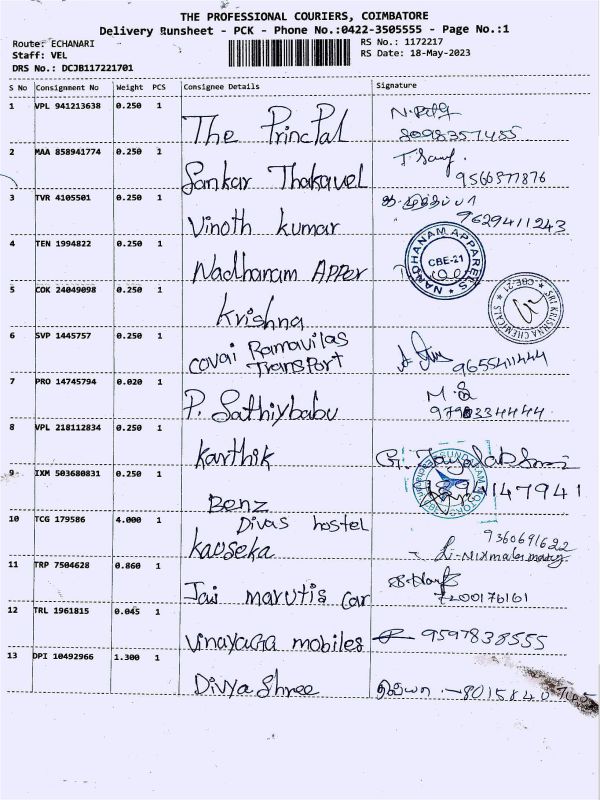 THE PROFESSIONAL COURIERS, COIMBATORE
Delivery Runsheet - PCK - Phone No.:0422-3505555 - Page No.:1
Route: ECHANARI
RS No.: 1172217
Staff: VEL
RS Date: 18-May-2023
DRS No.: DCJB117221701
S No Consignment No Weight PCS Consignee Details Signature
1 VPL 941213638 0.250 1
The Princpal 8098357455
2 MAA 858941774 0.250 1
Sankar Thakavel
3 TVR 4105501 0.250 1
Vinoth kumar 9629411243
4 TEN 1994822 0.250 1
Nadhanam Apper
NANDHANAM APPARELS CBE-21
5 COK 24049098 0.250 1
Krishna
SRI KRISHNA CHEMICALS CBE-21
6 SVP 1445757 0.250 1
covai Ramavilas
Transport 9655411444
7 PRO 14745794 0.020 1
P. Sathiybabu
8 VPL 218112834 0.250 1
karthik
9 IXM 503680831 0.250 1
Benz
10 TCG 179586 4.000 1
Divas hostel
kavseka 9360691622
11 TRP 7504628 0.860 1
Jai marutis car 7200176161
12 TRL 1961815 0.045 1
vinayaga mobiles 9597838555
13 DPI 10492966 1.300 1
Divya Shree